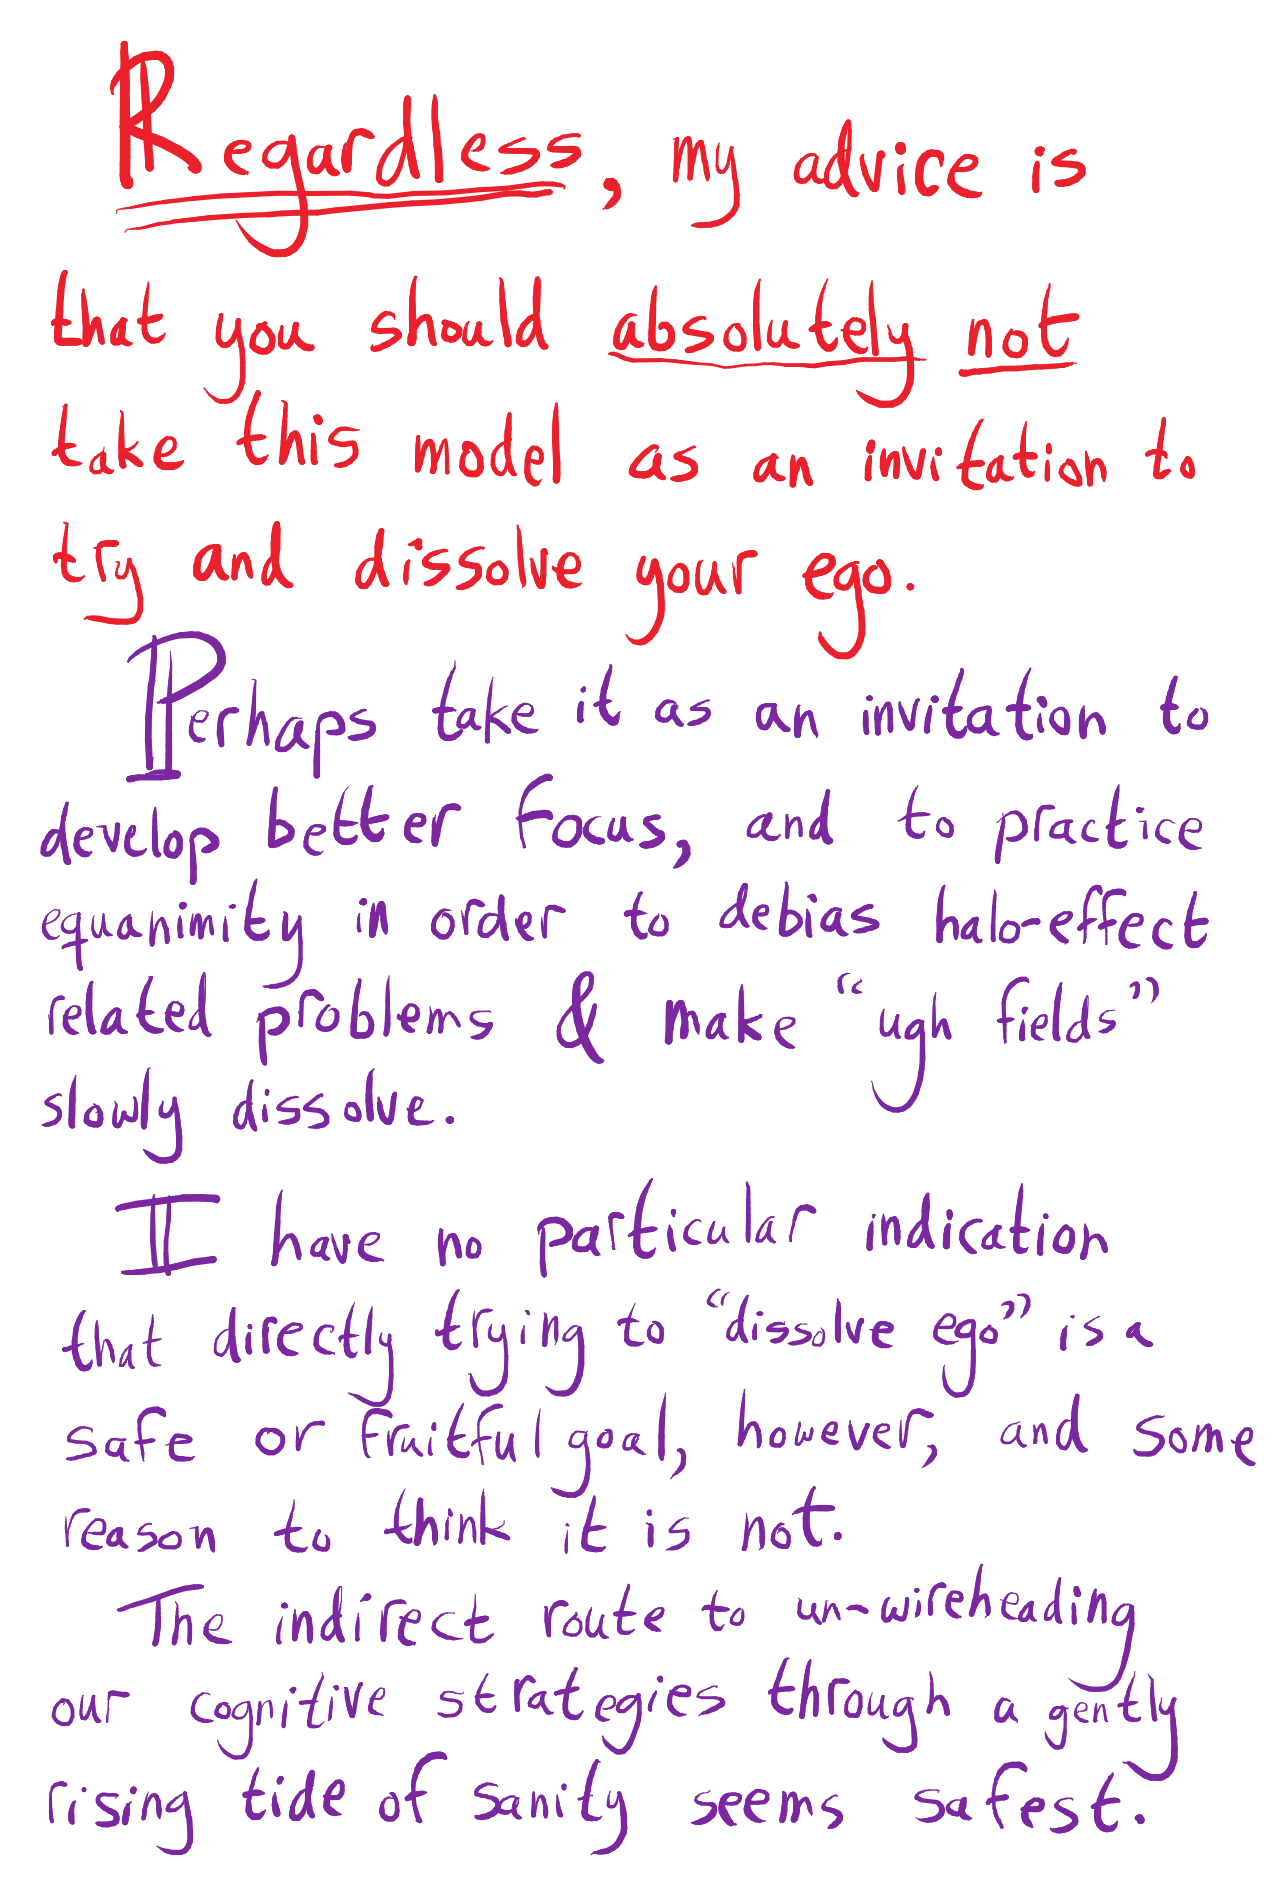 Regardless, my advice is
that you should absolutely not
take this model as an invitation to
try and dissolve your ego.
Perhaps take it as an invitation to
develop better focus, and to practice
equanimity in order to debias halo-effect
related problems & make “ugh fields”
slowly dissolve.
I have no particular indication
that directly trying to “dissolve ego” is a
safe or fruitful goal, however, and some
reason to think it is not.
The indirect route to un-wireheading
our cognitive strategies through a gently
rising tide of sanity seems safest.